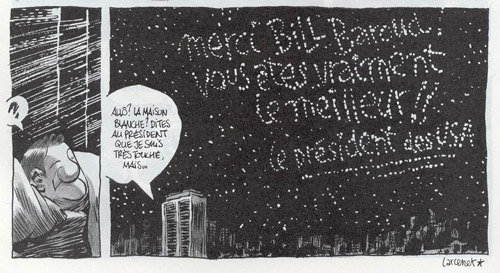 merci BILL Baroud!
vous êtes vraiment
le meilleur!!
le président des USA
ALLÔ? LA MAISON
BLANCHE? DITES
AU PRÉSIDENT
QUE JE SUIS
TRÈS TOUCHÉ,
MAIS...
Larcenet*